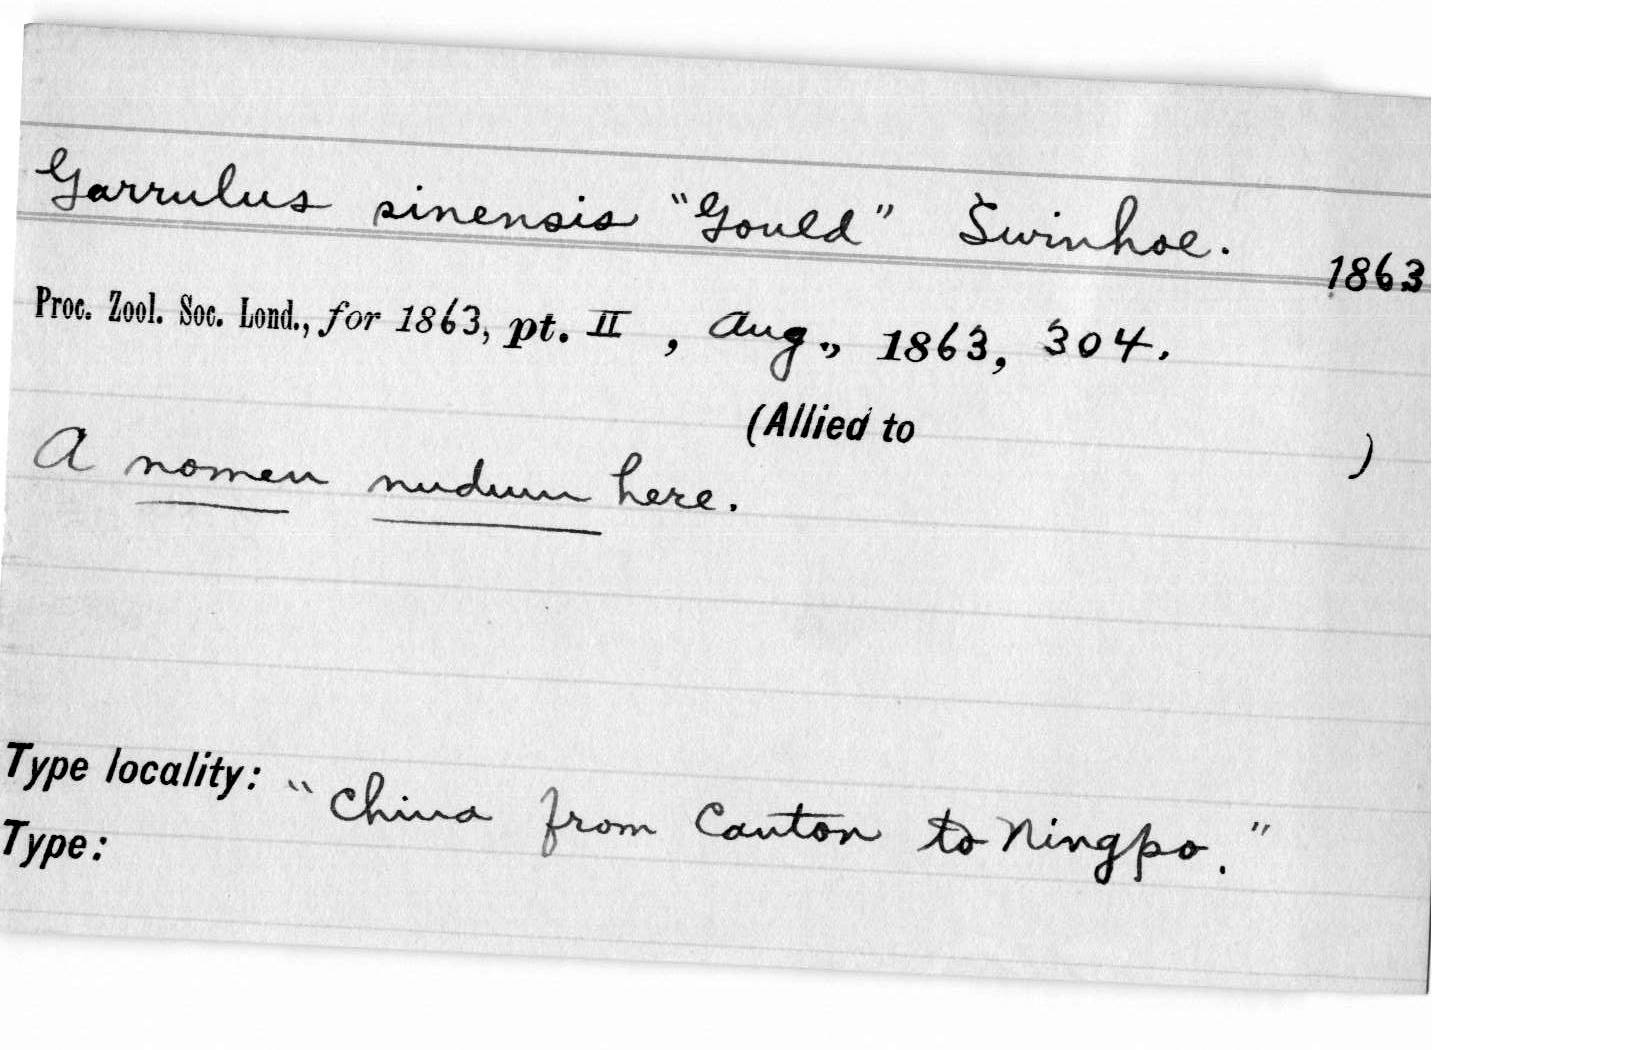 Garrulus sinensis "Gould" Swinhoe. 1863
Proc. Zool. Soc. Lond., for 1863, pt. II, Aug., 1863, 304.
(Allied to )
A nomen nudum here.
Type locality: "China from Canton to Ningpo."
Type: